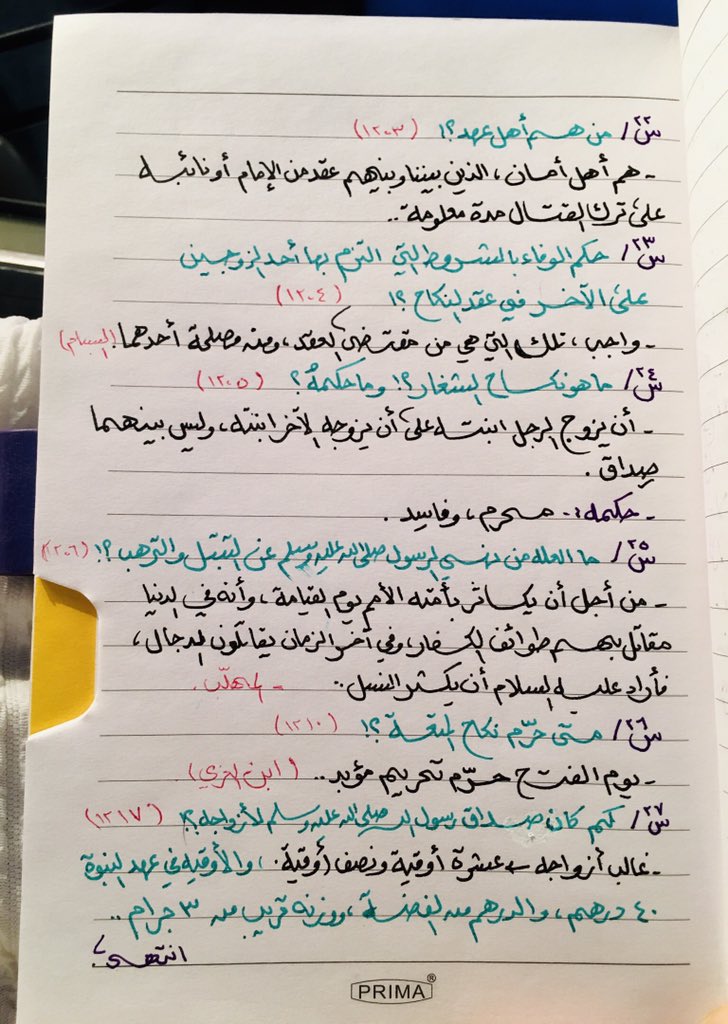 س٢٢/ من هم أهل عهد؟! (١٢٠٣)
- هم أهل أمان، الذين بيننا وبينهم عقد من الإمام أو نائبه
على ترك القتال مدة معلومة..
س٢٣/ حكم الوفاء بالشروط التي التزم بها أحد الزوجين
على الآخر في عقد النكاح؟! (١٢٠٤)
- واجب، تلك التي هي من مقتضى العقد، ومنه مصلحة أحدهما. (البسام)
س٢٤/ ما هو نكاح الشغار؟! وما حكمهُ؟ (١٢٠٥)
- أن يزوج الرجل ابنته على أن يزوجه الآخر ابنته، وليس بينهما
صداق.
- حكمه:- محرم، وفاسد.
س٢٥/ ما العله من نهي الرسول صلى الله عليه وسلم عن التبتل والترهب؟! (١٢٠٦)
- من أجل أن يكاثر بأمته الأمم يوم القيامة، وأنه في الدنيا
مقاتل بهم طوائف الكفار، وفي آخر الزمان يقاتلون الدجال،
فأراد عليه السلام أن يكثر النسل.. - المهلّب.
س٢٦/ متى حرّم نكاح المتعة؟! (١٢١٠)
- يوم الفتح حرّم تحريم مؤبد.. (ابن العربي)
س٢٧/ كم كان صداق رسول الله صلى الله عليه وسلم لأزواجه؟! (١٢١٧)
- غالب أزواجه ← عشرة أوقية ونصف أوقية. ، والأوقية في عهد النبوة
٤٠ درهم، والدرهم من الفضة، ووزنه قريب من ٣ جرام..
انتهى،
PRIMA®